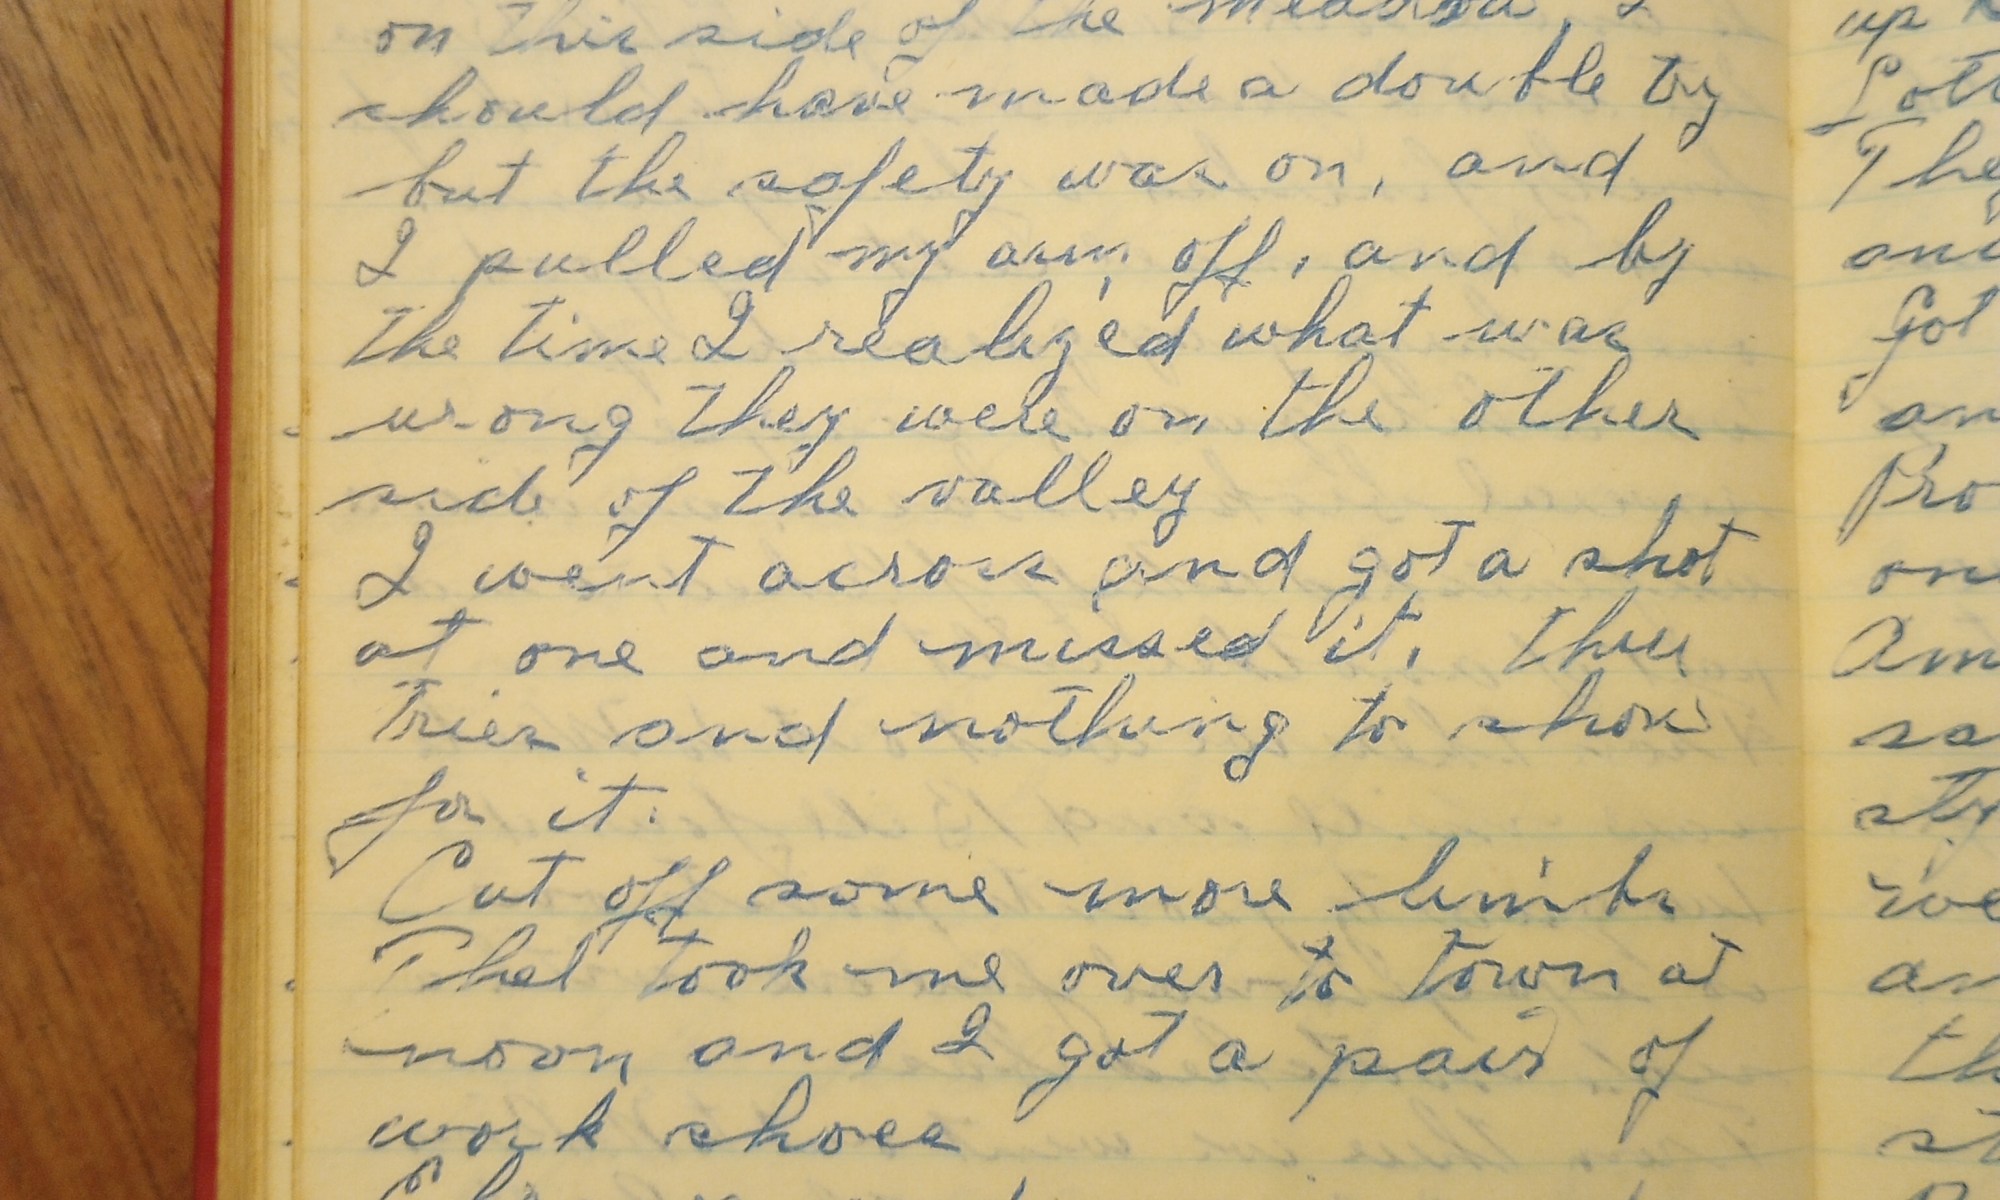 on this side of the meadow, I
should have made a double try
but the safety was on, and
I pulled my arm off, and by
the time I realized what was
wrong they were on the other
side of the valley
I went across and got a shot
at one and missed it, thru
tries and nothing to show
for it.
Cut off some more limbs
Thel took me over to town at
noon and I got a pair of
work shoes
up
Lott
They
and
Got
an
Pro
on
Am
sa
sty
we
an
th
st